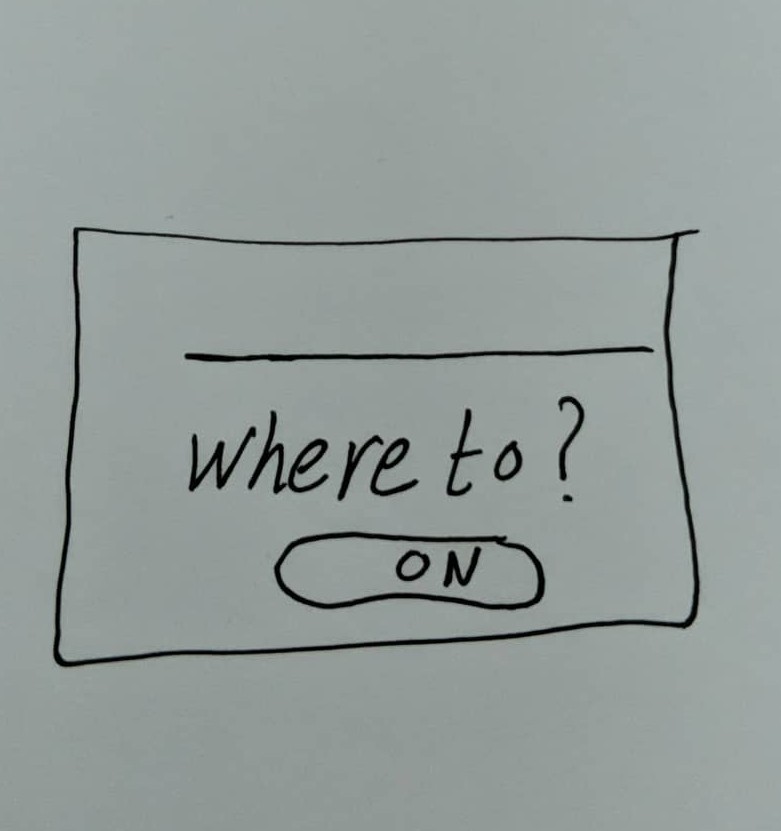 where to?
ON